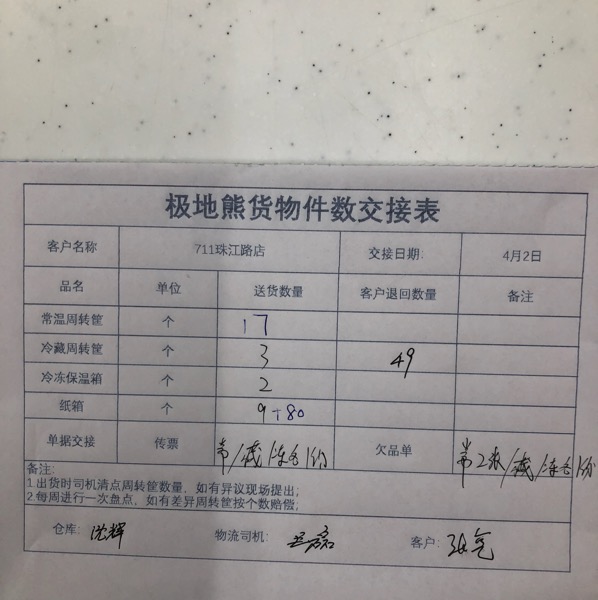 极地熊货物件数交接表
客户名称 711珠江路店 交接日期: 4月2日
品名 单位 送货数量 客户退回数量 备注
常温周转筐 个 17
冷藏周转筐 个 3 49
冷冻保温箱 个 2
纸箱 个 9+80
单据交接 传票 常/藏/冻各1份 欠品单 常2张/藏/冻各1份
备注:
1.出货时司机清点周转筐数量，如有异议现场提出;
2.每周进行一次盘点，如有差异周转筐按个数赔偿;
仓库: 沈辉 物流司机: 客户: